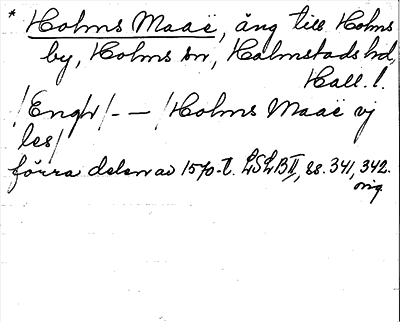 * Holms Maaë, äng till Holms
by, Holms sn, Halmstads hd,
Hall. l.
/Enghr/ - — /Holms Maaë vj
les/
förra delen av 1570-t. LSLB II, ss. 341, 342.
orig.